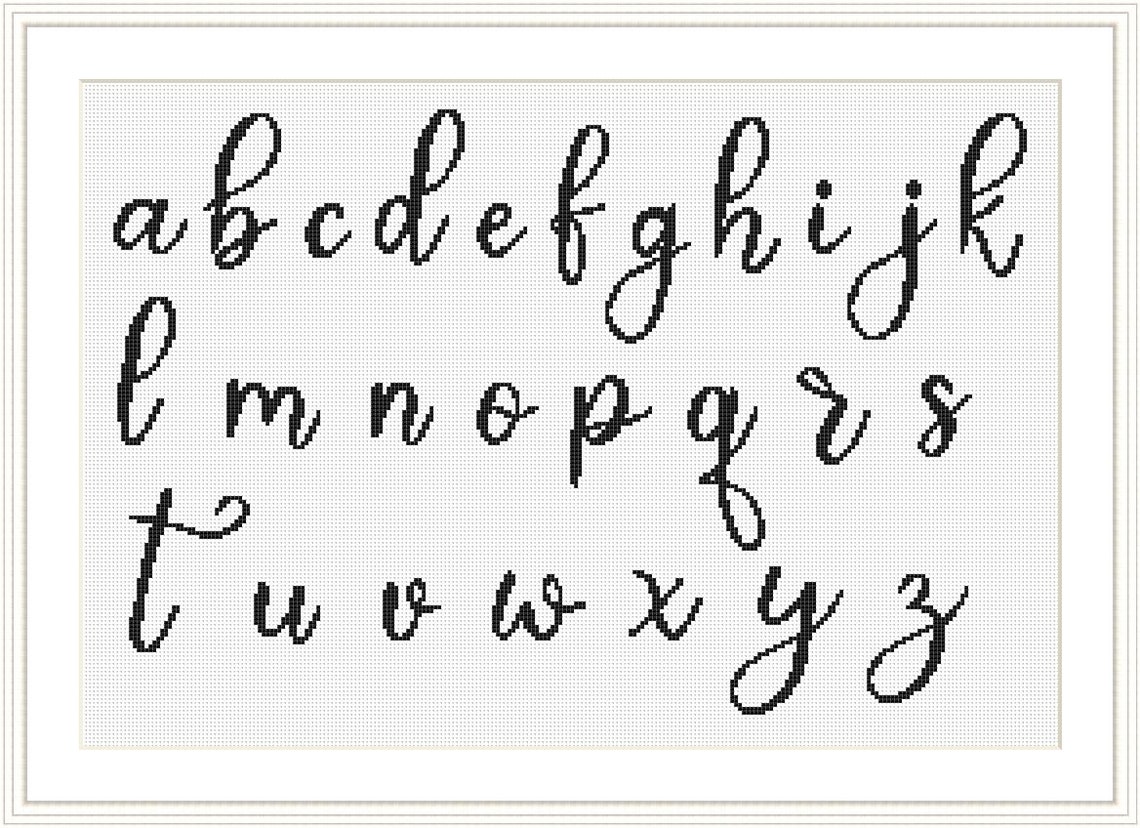 a b c d e f g h i j k
l m n o p q r s
t u v w x y z